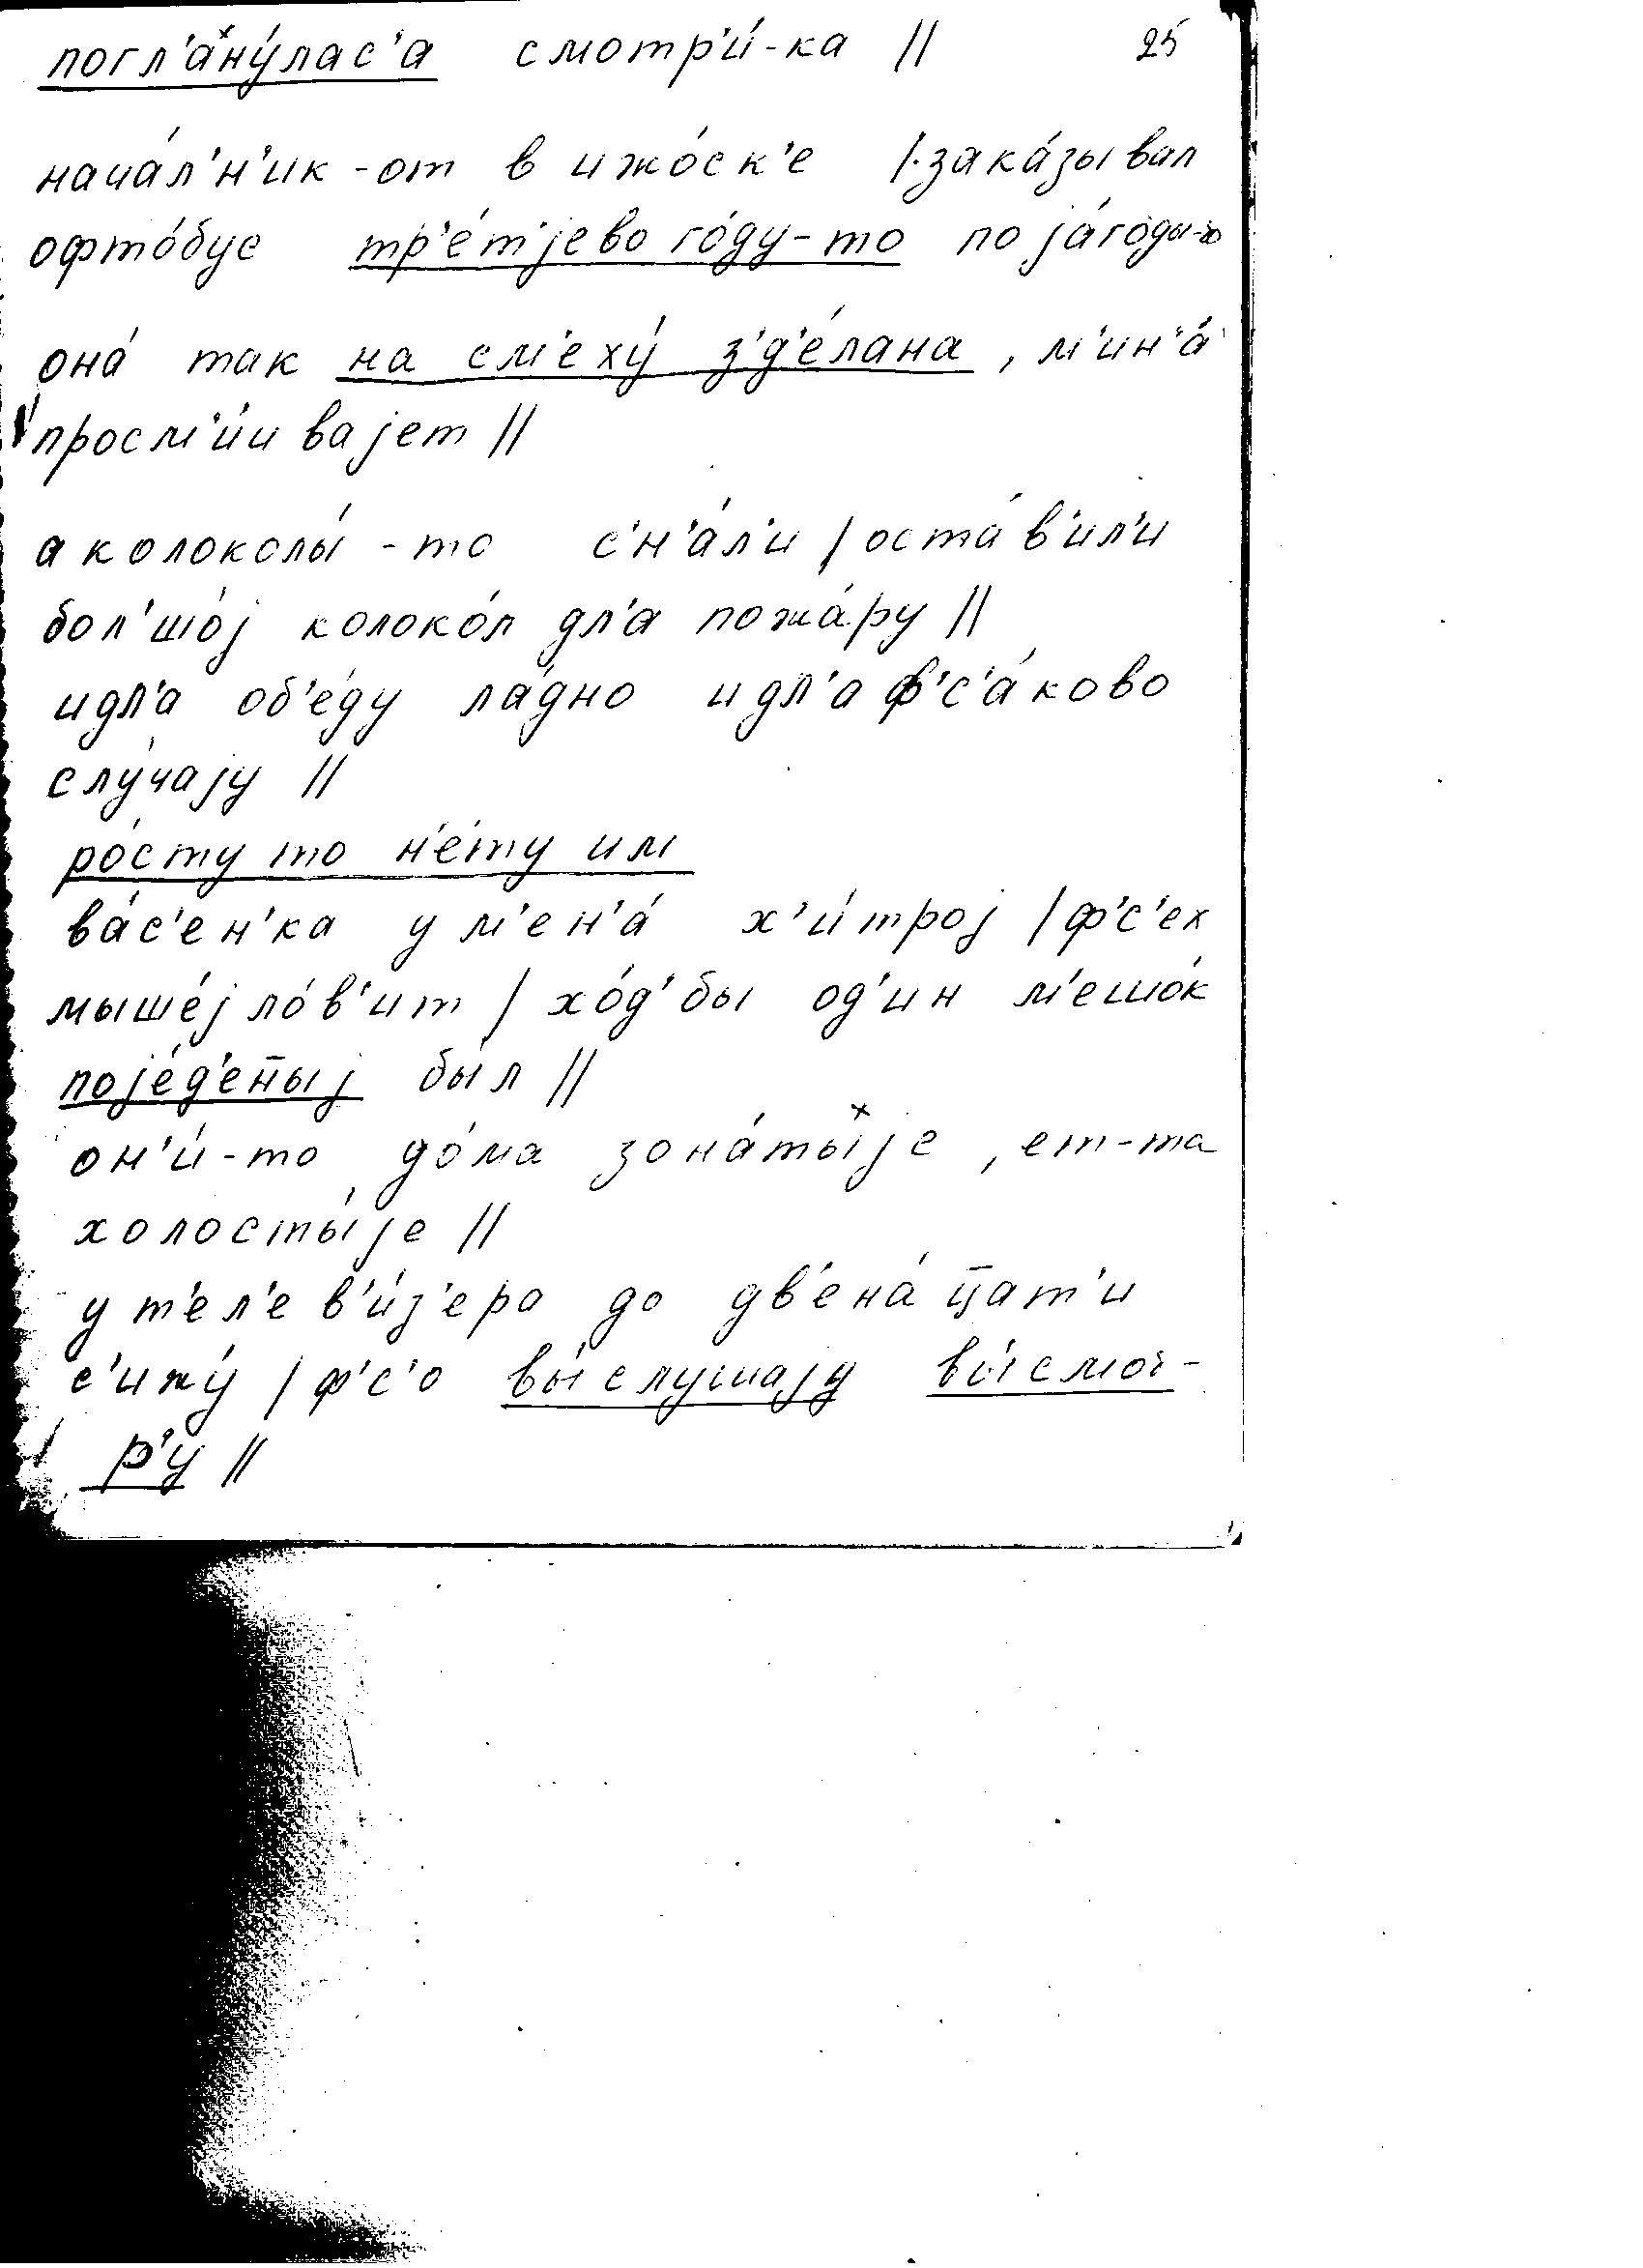 погл'ану́лас'а смотр'и́-ка || 25
нача́л'н'ик-от в ижо́ск'е | зака́зывал
офто́бус тр'е́т'јево го́ду-то по ја́годы-то
она́ так на см'еху́ з'д'е́лана, м'ин'а́
просм'и́ивајет ||
а колоколы́-то с'н'а́л'и | оста́в'ил'и
бол'шо́ј колоко́л дл'а пожа́ру ||
и дл'а об'е́ду ла́дно и дл'а ф'с'а́ково
слу́чају ||
ро́сту то н'е́ту им
ва́с'ен'ка у м'ен'а́ х'и́трој | ф'с'ех
мыше́ј ло́в'ит | хо́д' бы од'ин м'ешо́к
поје́д'ен̄ыј был ||
он'и́-то до́ма зона́тыје, ет-та
холосты́је ||
у т'ел'ев'и́з'ера до дв'ена́ц̄ат'и
с'ижу́ | ф'с'о вы́слушају вы́смот-
р'у ||